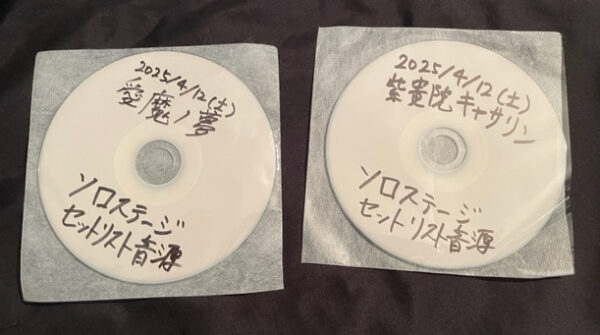 2025/4/12(土)
愛魔ノ夢
ソロステージ
セットリスト音源
2025/4/12(土)
紫貴院キャサリン
ソロステージ
セットリスト音源